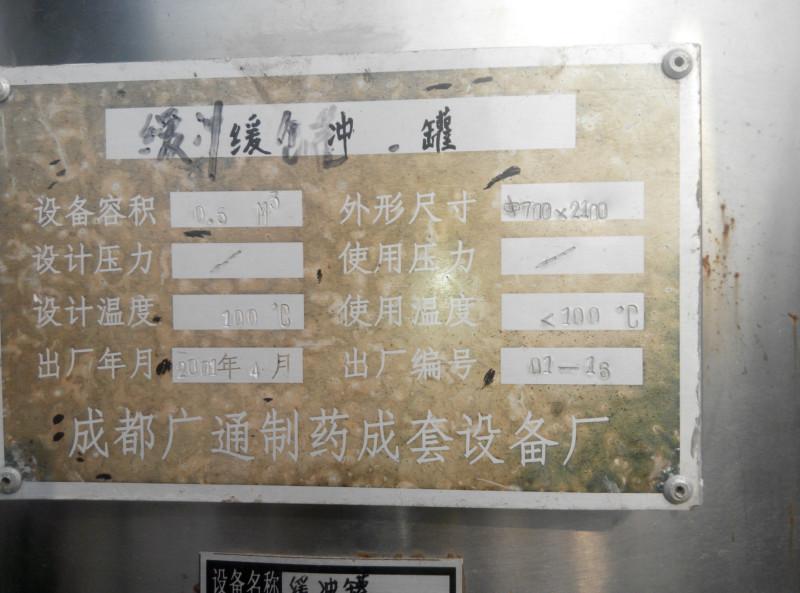 缓冲罐
设备容积 0.5 M³ 外形尺寸 Φ700×2100
设计压力 / 使用压力 /
设计温度 100 ℃ 使用温度 <100 ℃
出厂年月 2001年 4月 出厂编号 01-16
成都广通制药成套设备厂
设备名称 缓冲罐